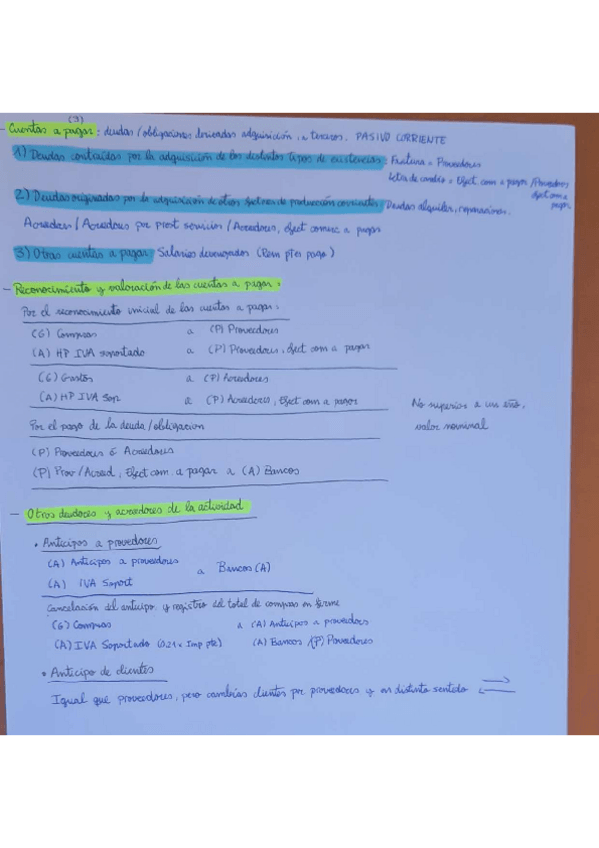 (3)
- Cuentas a pagar: deudas/obligaciones derivadas adquisición a terceros. PASIVO CORRIENTE
1) Deudas contraídas por la adquisición de los distintos tipos de existencias: Factura = Proveedores
Letra de cambio = Efect com a pagar / Proveedores efect com a pagar
2) Deudas originadas por la adquisición de otros factores de producción corrientes: Deudas alquiler, reparaciones.
Acreedores / Acreedores por prest servicios / Acreedores, efect comerc a pagar
3) Otras cuentas a pagar: Salarios devengados (Rem ptes pago)
- Reconocimiento y valoración de las cuentas a pagar:
Por el reconocimiento inicial de las cuentas a pagar:
(G) Compras a (P) Proveedores
(A) HP IVA soportado a (P) Proveedores, efect com a pagar
(G) Gastos a (P) Acreedores
(A) HP IVA Sop a (P) Acreedores, Efect com a pagar
No superior a un año, valor nominal
Por el pago de la deuda/obligacion
(P) Proveedores ó Acreedores
(P) Prov/Acreed, Efect com. a pagar a (A) Bancos
- Otros deudores y acreedores de la actividad
• Anticipos a proveedores
(A) Anticipos a proveedores a Bancos (A)
(A) IVA Soport
Cancelación del anticipo y registro del total de compras en firme
(G) Compras a (A) Anticipos a proveedores
(A) IVA Soportado (0.21 x Imp pte) (A) Bancos /(P) Proveedores
• Anticipo de clientes
Igual que proveedores, pero cambias clientes por proveedores y en distinto sentido